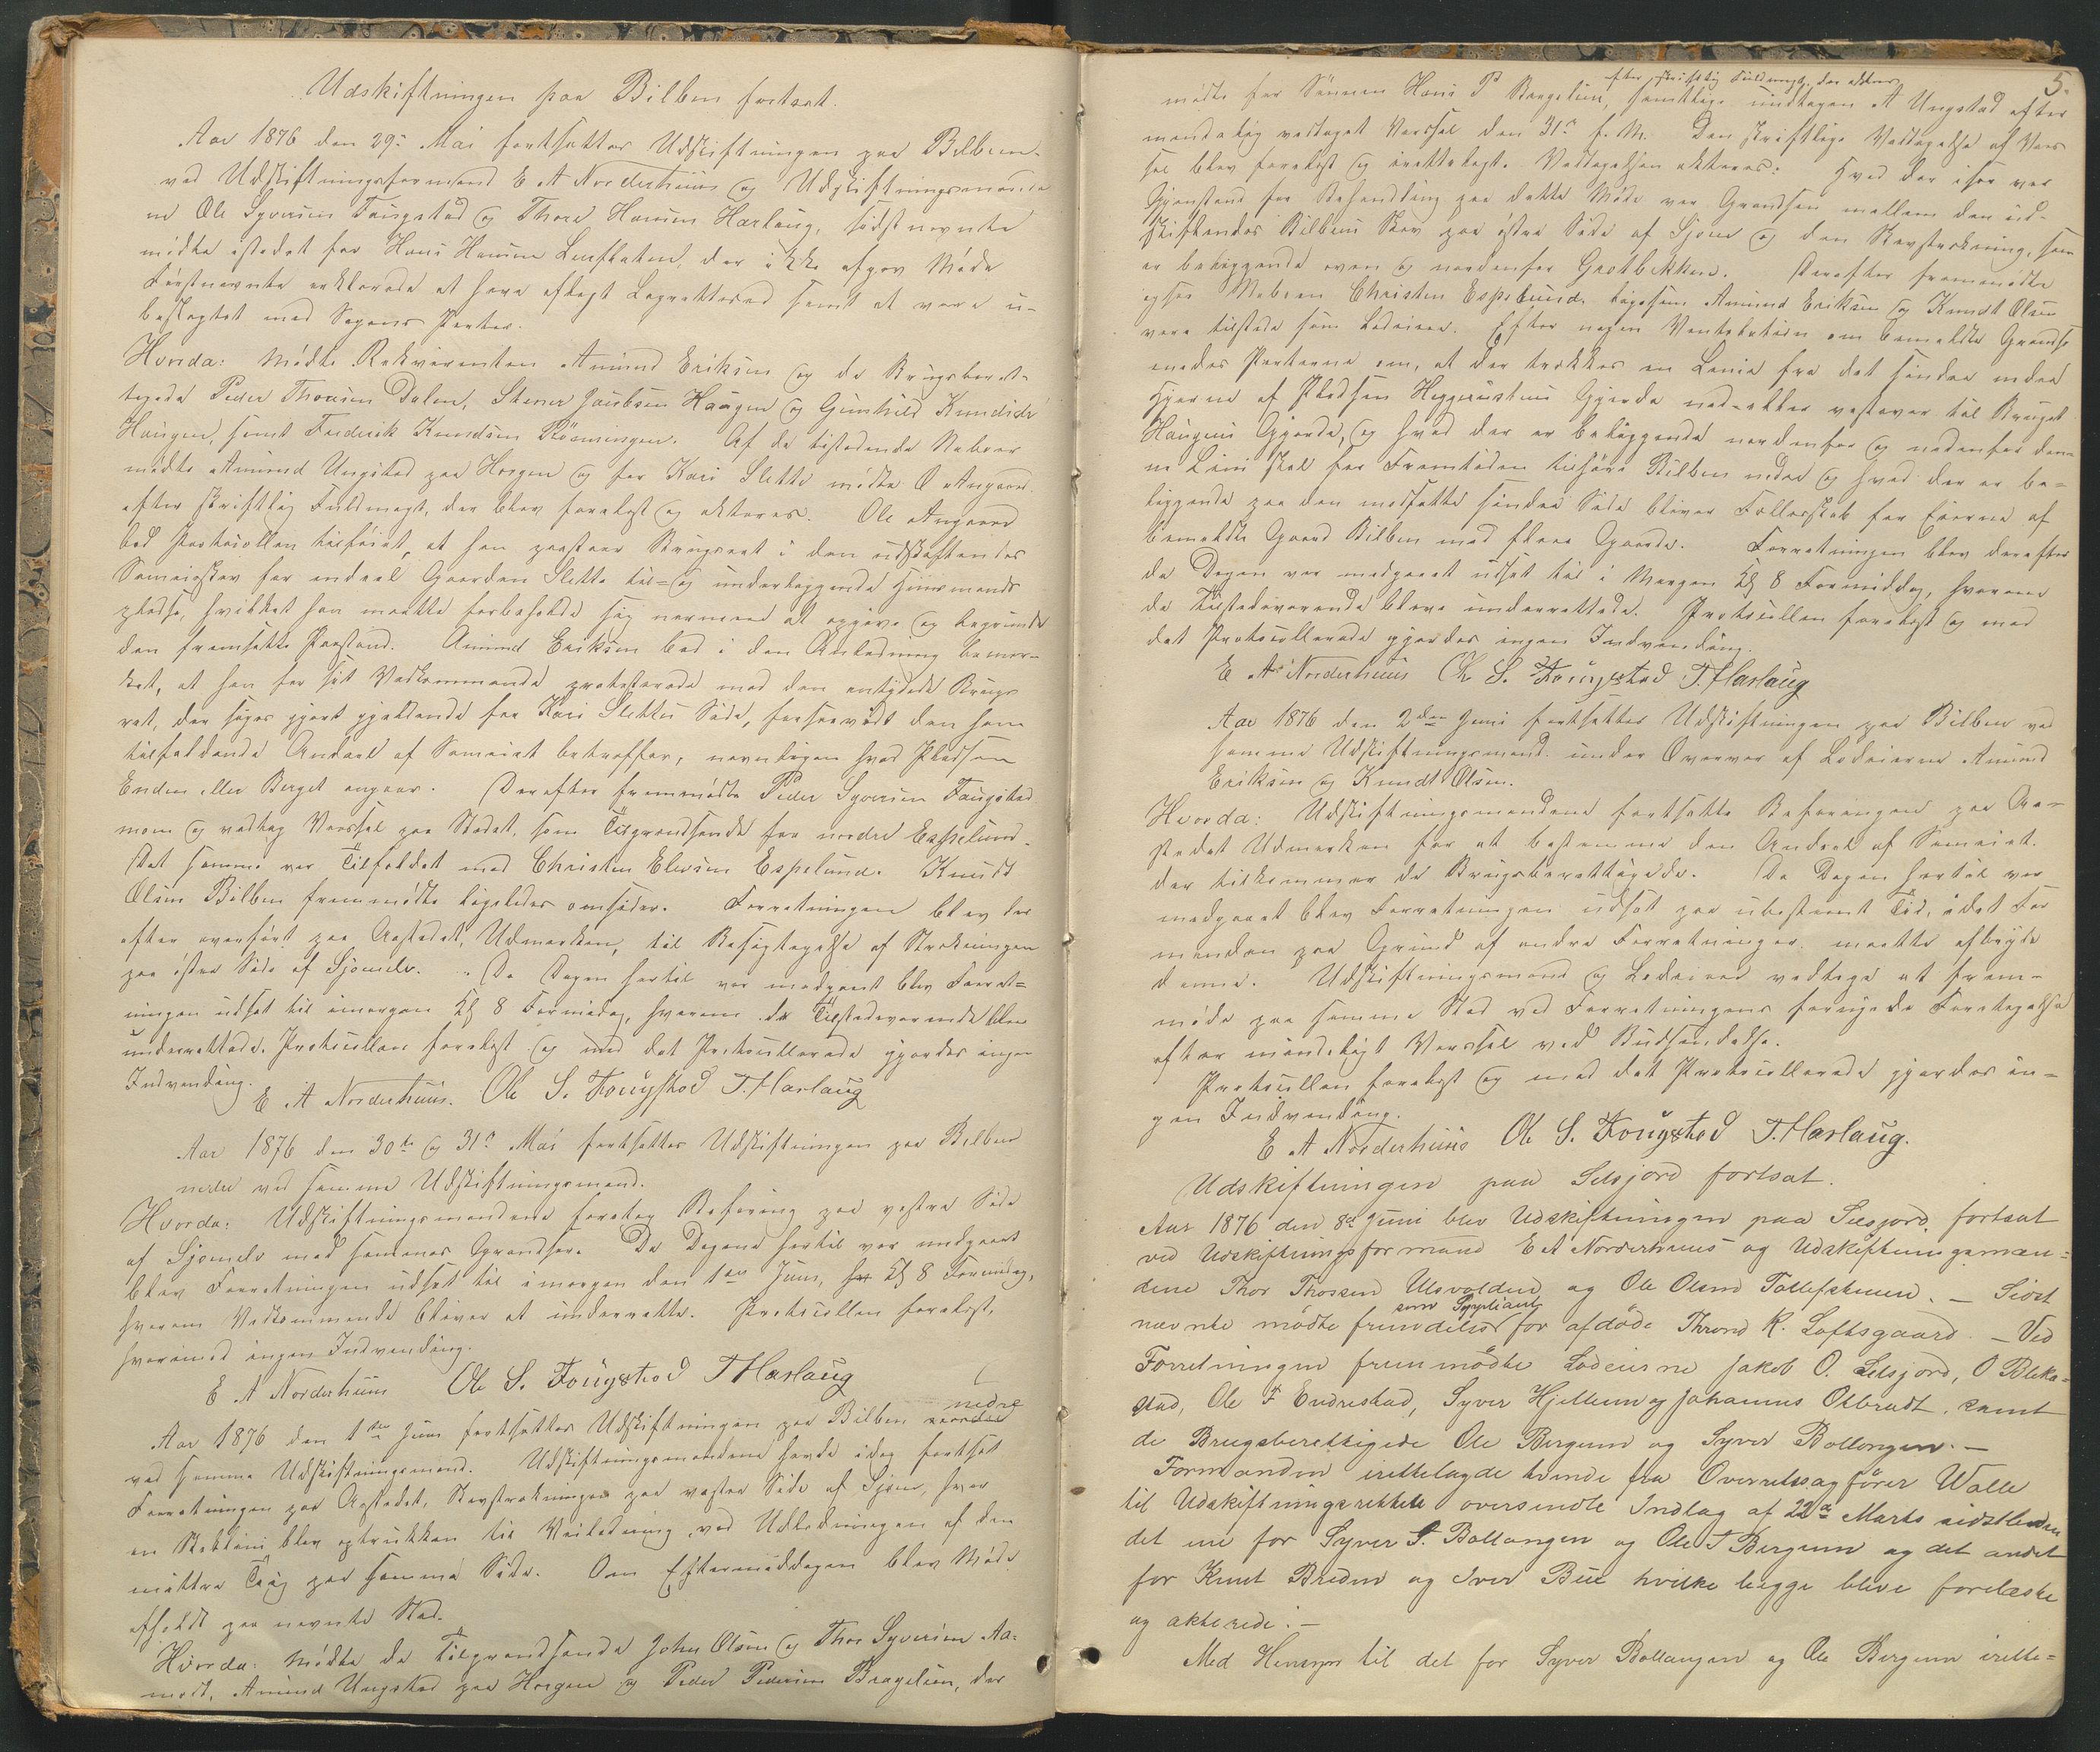 Udskiftningen paa Bilben fortsat.
Aar 1876 den 29de Mai fortsattes Udskiftningen paa Bilben
ved Udskiftningsformand E A Norderhuus og Udskiftningsmænde
ne Ole Syversen Fougstad og Thore Hansen Harlaug, sidstnævnte
mødte istedet for Hans Hansen, der ikke afgav Møde
Førstnævnte erklærede at have aflagt Lagrettesed samt at være u-
beslægtet med Sagens Parter.
Hvorda: Mødte Rekvirenten Amund Eriksen og de Brugsberet-
tigede Peder Thoresen Dalen, Stener Jacobsen Haugen og Gunhild Knudsdr
Haugen, samt Frederik Knudsen. Af de tilstødende Naboer
mødte Amund Ungstad paa Horgen og for Kari Slette mødte O Angaard
efter skriftlig Fuldmagt, der blev forelagt og akteres. Ole Angaard
bad Protocollen tilført, at han paastaar Brugsret i den udskiftendes
Sameieskov for endeel Gaarden Slette til- og underliggende Huusmands
pladse, hvilket han maatte forbeholde sig nærmere at opgive og begrunde
den fremsatte Paastand. Amund Eriksen bad i den Anledning bemær-
ket, at han for sit Vedkommende protesterede mod den antydede Brugs
ret, der søges gjort gjældende fra Kari Slettes Side, forsaavidt den ham
tilfaldende Andeel af Sameiet betræffer, navnligen hvad Pladsen
Enden eller Berget angaar. Derefter fremmødte Peder Syversen Fougstad
moen og vedtog Varsel paa Stedet, som Tilgrændsende for nordre Espelund.
Det samme var Tilfældet med Christen Elevsen Espelund. Knudt
Olsen Bilben fremmødte ligeledes omsider. Forretningen blev der
efter overført paa Aastedet, Udmarken, til Besigtigelse af Strækningen
paa østre Side af Sjoaelv. Da Dagen hertil var medgaaet blev Forret-
ningen udsat til imorgen Kl 8 Formidag, hvorom de Tilstedeværende blev
underrettede. Protocollen forelæst og mod det Protocollerede gjordes ingen
Indvending.
E A Norderhuus. Ole S. Fougstad T. Harlaug
Aar 1876 den 30te og 31te Mai fortsattes Udskiftningen paa Bilben
nedre ved samme Udskiftningsmænd.
Hvorda: Udskiftningsmændene foretog Befaring paa vestre Side
af Sjoaelv med sammes Grændser. Da Dagene hertil var medgaaet
blev Forretningen udsat til imorgen den 1ste Juni, Kl 8 Formidag,
hvorom Vedkommende bliver at underrette. Protocollen forelæst,
hvorimod ingen Indvending.
E A Norderhuus Ole S. Fougstad T Harlaug
Aar 1876 den 1ste Juni fortsattes Udskiftningen paa Bilben nedre
ved samme Udskiftningsmænd. Udskiftningsmændene havde idag fortsat
Forretningen paa Aastedet, Skovstrækningen paa vestre Side af Sjoen, hvor
en Stiklini blev optrukken til Veiledning ved Udlodningen af den
midtre Teig paa samme Side. Om Eftermiddagen blev Møde
afholdt paa nævnte Sted.
Hvorda: Mødte de Tilgrændsende John Olsen og Thor Syversen Aa-
modt, Amund Ungstad paa Horgen og Peder Pedersen Bragelien, der
5.
efter skriftlig Fuldmagt, der akteres
mødte for Sønnen Hans P Bragelien, samtlige undtagen A Ungstad efter
mundtlig vedtaget Varsel den 31te f. M. Den skriftlige Vedtagelse af Var
sel blev forelagt og irettelagt. Vedtagelsen akteres: Hvad der især var
Gjenstand for Behandling paa dette Møde var Grændsen mellem den ud-
skiftendes Bilbens Skov paa østre Side af Sjoen og den Skovstrækning, som
er beliggende oven og nordenfor Grotbækken. Derefter fremmødte
ogsaa Naboen Christen Espelund, ligesom Amund Eriksen og Knudt Olsen
vare tilstede som Lodeiere. Efter nogen Ventilation om bemeldte Grændse
enedes Parterne om, at der trækkes en Linie fra det søndre nedre
Hjørne af Pladsen Heggerustens Gjerde ned- eller vestover til Bruget
Haugens Gjerde, og hvad der er beliggende nordenfor og nedenfor den-
ne Linie skal for Fremtiden tilhøre Bilben nedre og hvad der er be-
liggende paa den modsatte søndre Side bliver Fællesskab for Eierne af
bemeldte Gaard Bilben med flere Gaarde. Forretningen blev derefter
da Dagen var medgaaet udsat til i Morgen Kl 8 Formiddag, hvorom
de Tilstedeværende bleve underrettede. Protocollen forelæst og mod
det Protocollerede gjordes ingen Indvending.
E A Norderhuus Ole S. Fougstad T. Harlaug
Aar 1876 den 2den Juni fortsattes Udskiftningen paa Bilben ved
samme Udskiftningsmænd under Overvær af Lodeierne Amund
Eriksen og Knudt Olsen.
Hvorda: Udskiftningsmændene fortsatte Befaringen paa Aa-
stedet Udmarken for at bestemme den Andeel af Sameiet
der tilkommer de Brugsberettigede. Da Dagen hertil var
medgaaet blev Forretningen udsat paa ubestemt Tid, idet For
manden paa Grund af andre Forretninger maatte afbryde
denne. Udskiftningsmænd og Lodeiere vedtoge at frem-
møde paa samme Sted ved Forretningens fornyede Foretagelse
efter mundtligt Varsel ved Budsendelse.
Protocollen forelæst og mod det Protocollerede gjordes in-
gen Indvending.
E A Norderhuus Ole S. Fougstad T. Harlaug.
Udskiftningen paa Selsjord fortsat.
Aar 1876 den 8de Juni blev Udskiftningen paa Selsjord fortsat
ved Udskiftningsformand E A Norderhuus og Udskiftningsmæn-
dene Thor Thossen Ulsvolden og Ole Olsen Tollefshuen. — Sidst
nævnte mødte fremdeles som Suppleant for afdøde Thrond K. Loftsgaard. — Ved
Forretningen fremmødte Lodeierne Jakob O. Selsjord, O Bleka-
stad, Ole F Endrestad, Syver Hjellum og Johannes Olbrudt, samt
de Brugsberettigede Ole Bergum og Syver Bollongen. —
Formanden irettelagde tvende fra Overretssagfører Walle
til Udskiftningsretten oversendte Indlæg af 22de Marts sidstleden
det ene for Syver S. Bollangen og Ole S Bergum og det andet
for Knut Breden og Iver Bue hvilke begge bleve forelæste
og akterede: —
Med Hensyn til det for Syver Bollangen og Ole Bergum irette-